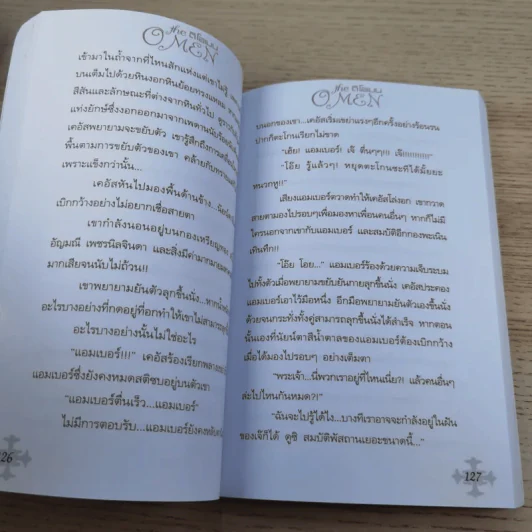 OMEN
เข้ามาในถ้ำจากที่ไหนสักแห่งแต่เขาไม่รู้
บนเต็มไปด้วยหินงอกหินย้อยทรงแหลม
สีสันและลักษณะที่ต่างจากหินทั่วไป
แท่งยักษ์ซึ่งงอกออกมาจากเพดานผนัง
เคอัสพยายามจะขยับตัว เขารู้สึกถึงการเคลื่อน
พื้นตามการขยับตัวของเขา คล้ายกับทราย
เพราะแข็งกว่านั้น...
เคอัสหันไปมองพื้นด้านข้าง
เบิกกว้างอย่างไม่อยากเชื่อสายตา
เขากำลังนอนอยู่บนกองเหรียญทอง
อัญมณี เพชรนิลจินดา และสิ่งมีค่ามากมาย
มากเสียจนนับไม่ถ้วน!!
เขาพยายามยันตัวลุกขึ้นนั่ง...
อะไรบางอย่างที่กดอยู่ที่อกทำให้เขาไม่สามารถ
อะไรบางอย่างนั้นไม่ใช่อะไร
"แอมเบอร์!!!" เคอัสร้องเรียก
แอมเบอร์ซึ่งยังคงหมดสติซบอยู่บนตัวเขา
"แอมเบอร์ตื่นเร็ว...แอมเบอร์"
ไม่มีการตอบรับ...แอมเบอร์ยังคง
126
OMEN
บนอกของเขา...เคอัสเริ่มเขย่าแรงๆอีกครั้งอย่างร้อนรน
ปากก็ตะโกนเรียกไม่ขาด
"เฮ้ย! แอมเบอร์! เจ๊ ตื่นๆๆ!!! เจ๊!!!!!!!!!!"
"โอ๊ย รู้แล้วๆ! หยุดตะโกนซะทีได้มั้ยยะ
หนวกหู!!"
เสียงแอมเบอร์ตวาดทำให้เคอัสโล่งอก เขากวาด
สายตามองไปรอบๆเพื่อมองหาเพื่อนคนอื่นๆ หากก็ไม่มี
ใครนอกจากเขากับแอมเบอร์ และสมบัติอีกกองพะเนิน
เทินทึก!!
"โอ๊ย โอย..." แอมเบอร์ร้องด้วยความเจ็บระบม
ไปทั้งตัวเมื่อพยายามขยับยันกายลุกขึ้นนั่ง เคอัสประคอง
แอมเบอร์เอาไว้มือหนึ่ง อีกมือพยายามยันตัวเองขึ้นนั่ง
ด้วยจนกระทั่งทั้งคู่สามารถลุกขึ้นนั่งได้สำเร็จ หากตอน
นั้นเองที่นัยน์ตาสีน้ำตาลของแอมเบอร์ต้องเบิกกว้าง
เมื่อได้มองไปรอบๆ อย่างเต็มตา
"พระเจ้า...นี่พวกเราอยู่ที่ไหนเนี่ย?! แล้วคนอื่นๆ
ล่ะไปไหนกันหมด?!"
"ฉันจะไปรู้ได้ไง...บางทีเราอาจจะกำลังอยู่ในฝัน
ของเจ๊ก็ได้ ดูซิ สมบัติพัสถานเยอะขนาดนี้..."
127